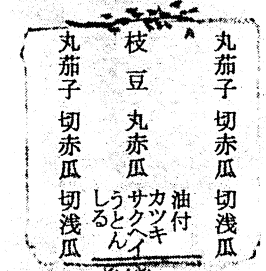 丸茄子 切赤瓜 切浅瓜
枝豆 丸赤瓜
油付
カツキ
サクヘイ
うとん
しる
丸茄子 切赤瓜 切浅瓜